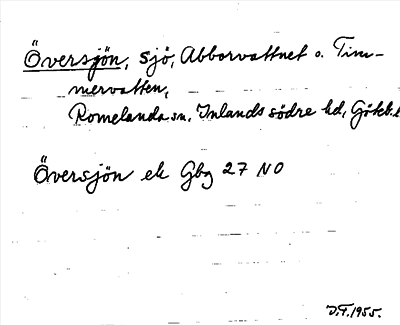 Översjön, sjö, Abborvattnet o. Tim-
mervatten,
Romelanda sn. Inlands södre hd, Göteb.
Översjön ek Gbg 27 NO
D.F. 1955.